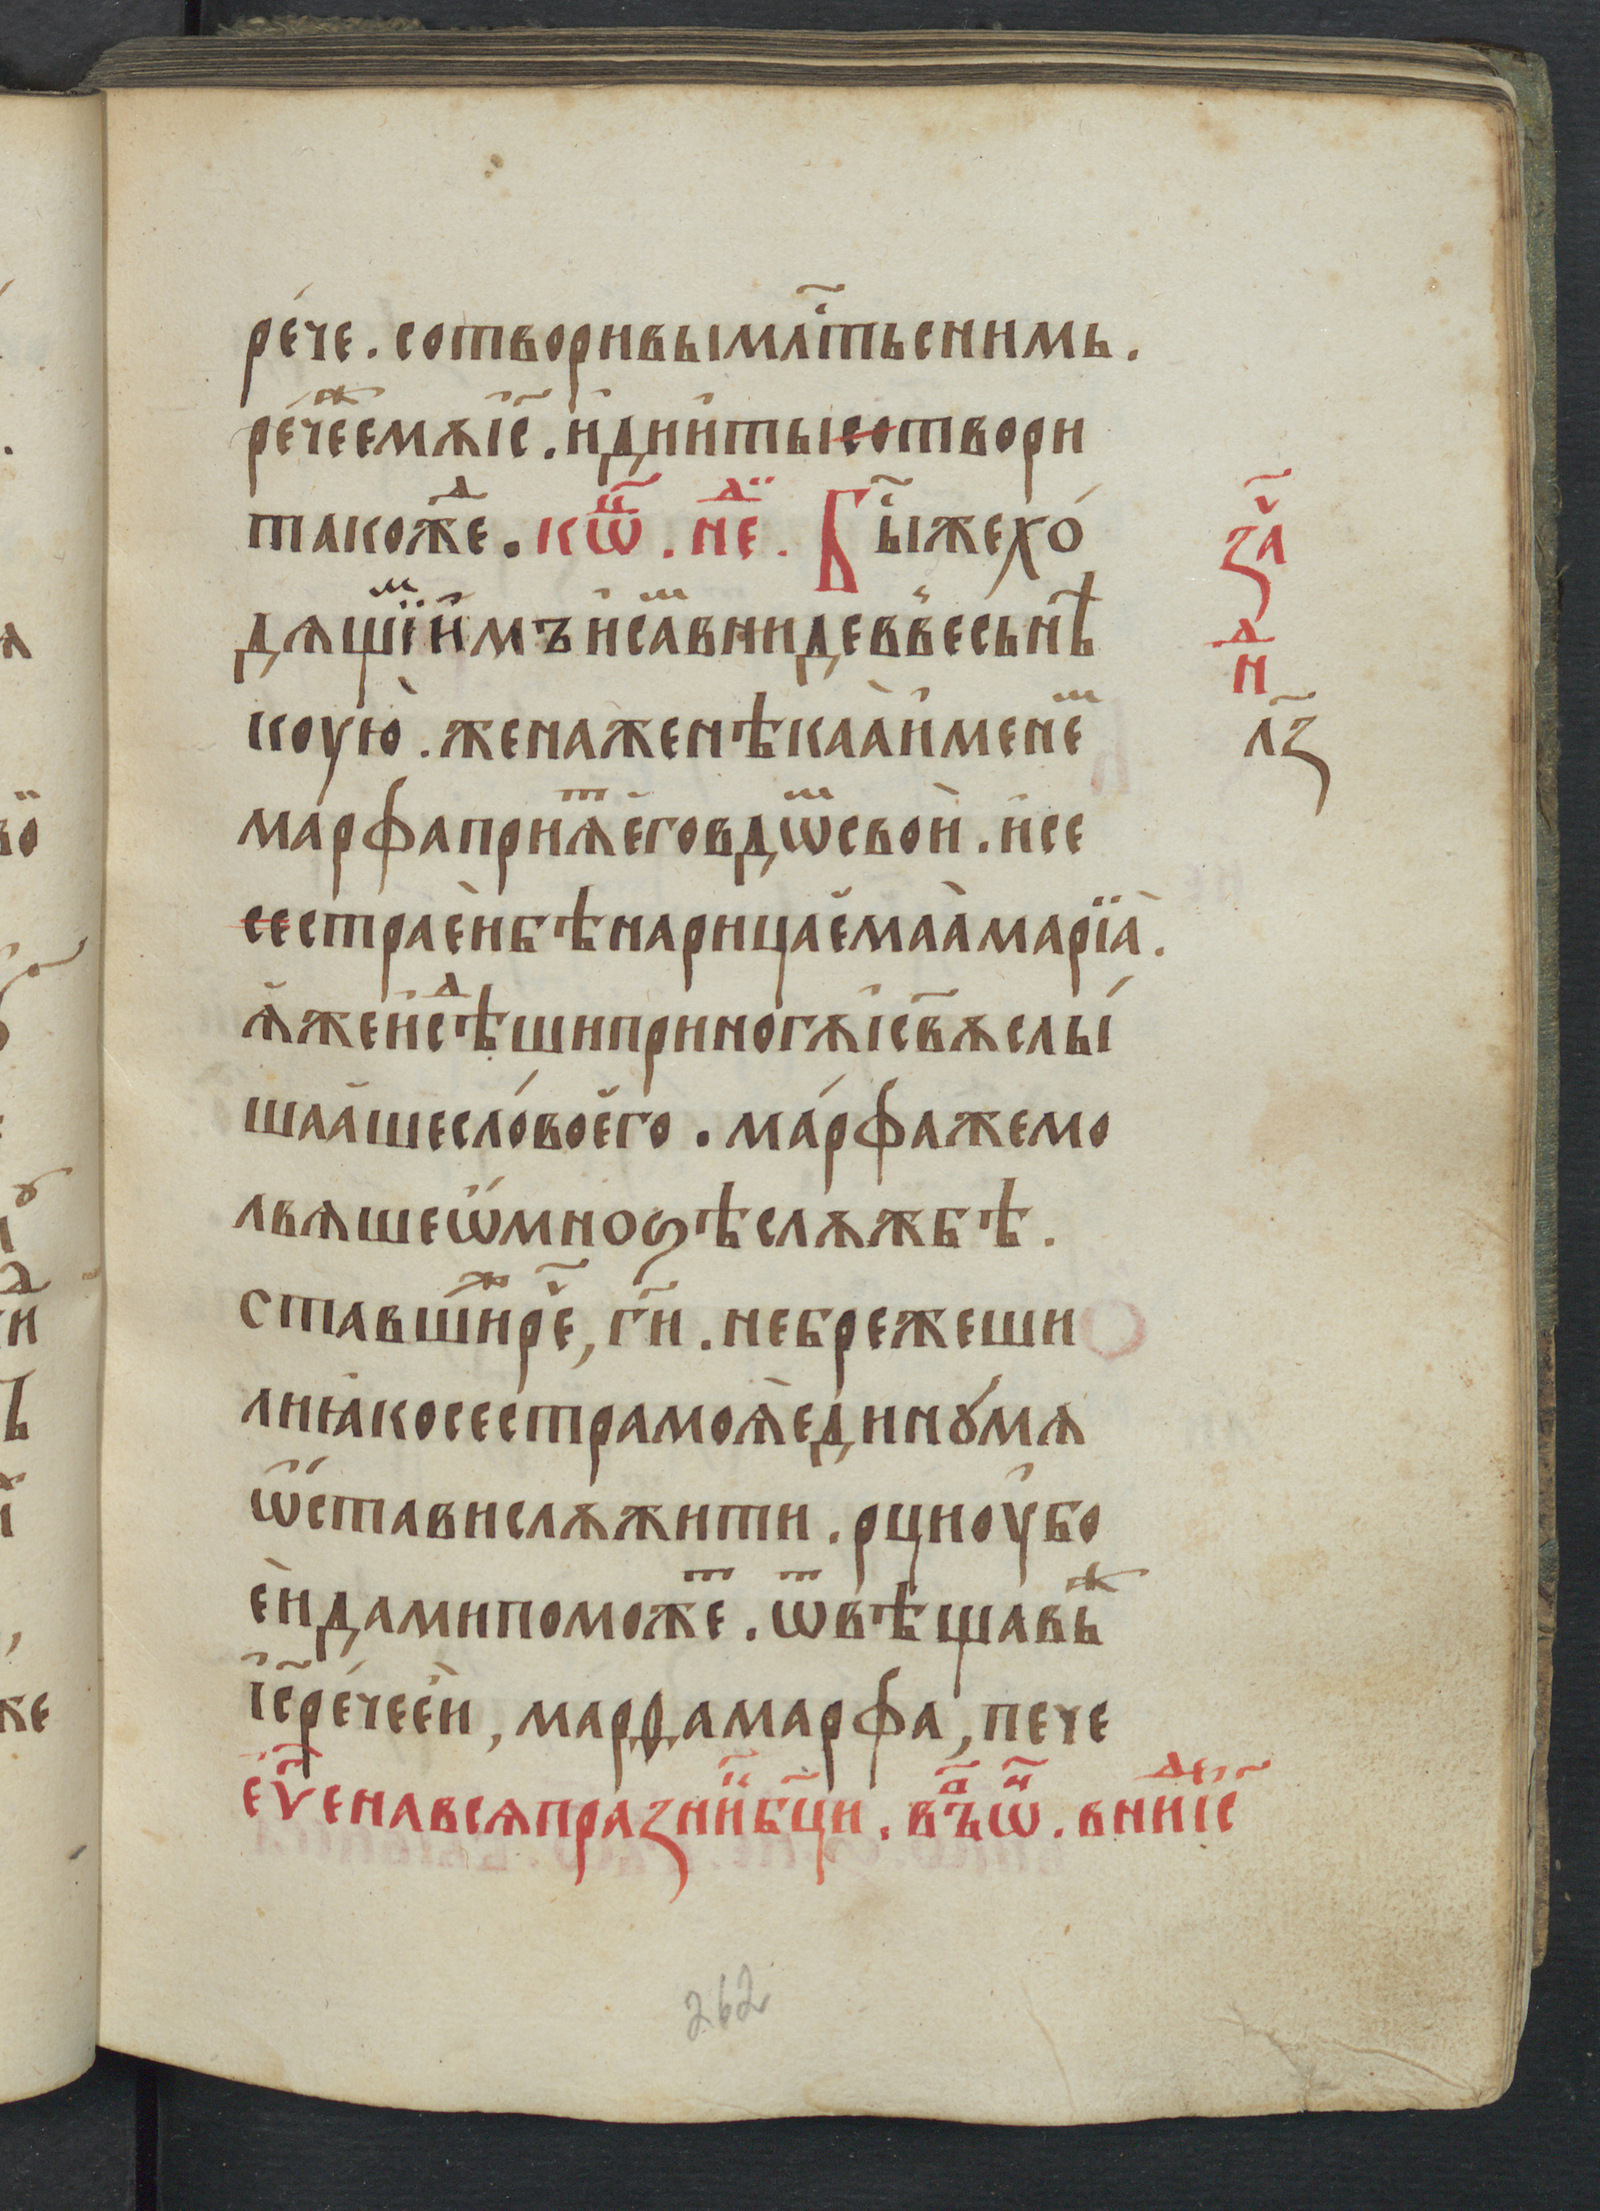 ре́че . сотворивыимл҃тьснимь .
ре́чежеемѫі҃с . и҆ди́и҆тысотвори
тakoжⷣе . кѡ҃ц . неⷣ . Бы҃жехо́
дѧщіиⷨмъ и҆са́мвнидеввесьнѣ
коую̀ . женаженѣкаꙗ̀и҆менеⷨ
марфапріѧⷮе҆говдѡⷨсвоѝ . и҆се
сестрае҆ѝбѣнарицае҆маꙗ̀марїа̀ .
ꙗ҆жеи҆сѣⷣшипринѡгѫі҃свѫслы́
шаа҆шесло́вое҆го . ма́рфажемо
лвѧшеѡ҆мноѕѣслѫжбѣ .
ставшиⷤрⷱ҇е, гⷭ҇и . небрежеши
лиꙗ҆косестрамоꙗ̀е҆динꙋмѧ
ѡ҆ставислѫжити . рциоу҆бо
е҆ѝдамипоможеⷮ . ѿвѣщавьⷤ
і҃сре́чее҆ѝ, марфамарфа, пече
еѵⷢ҇енавсѧпразниⷦ҇бц҃и . в҃ꙿѡ҃ . внⷣиі҃с
за҃ⷱ
нⷣ
л҃з
262